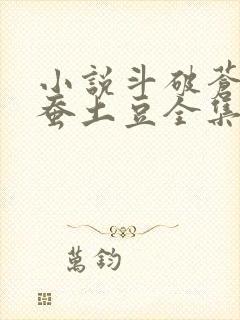 小説斗破蒼
蚕土豆全集
萬鈞